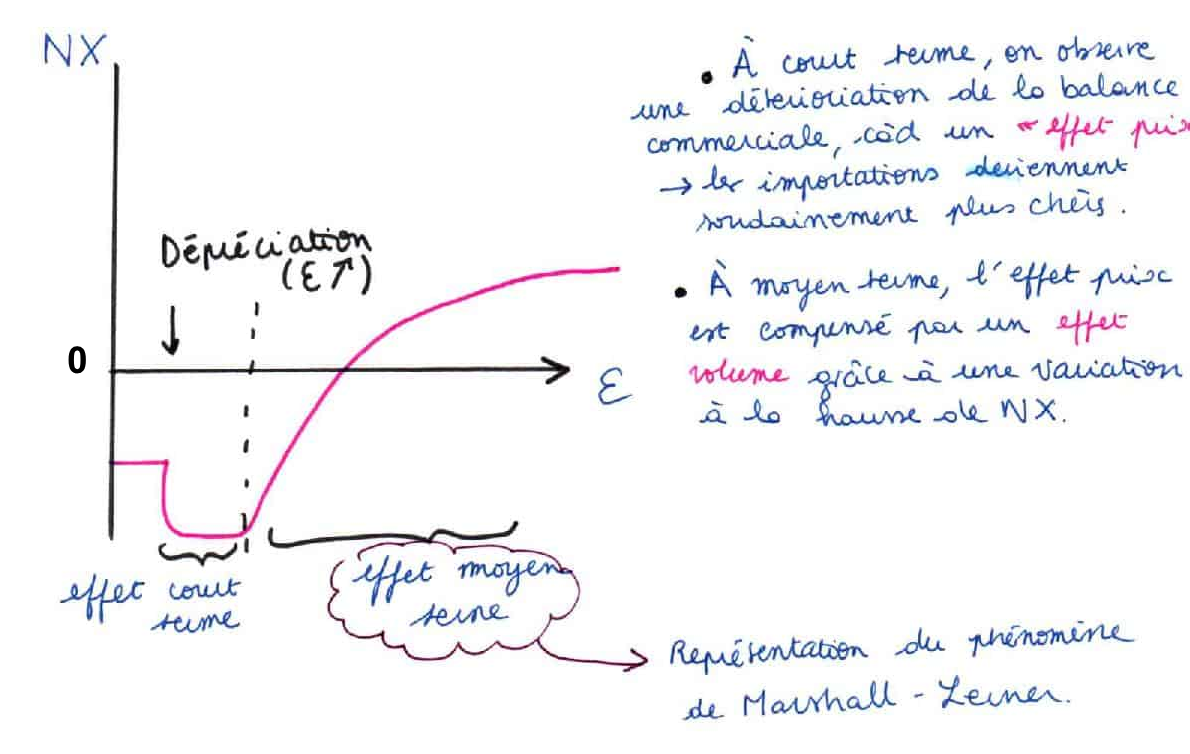 NX
Dépréciation
(ε↗)
0
ε
effet court
terme
effet moyen
terme
• À court terme, on observe
une détérioriation de la balance
commerciale, càd un effet prix
→ les importations deviennent
soudainement plus chèrs.
• À moyen terme, l'effet prix
est compensé par un effet
volume grâce à une variation
à la hausse de NX.
Représentation du phénomène
de Marshall-Lerner.